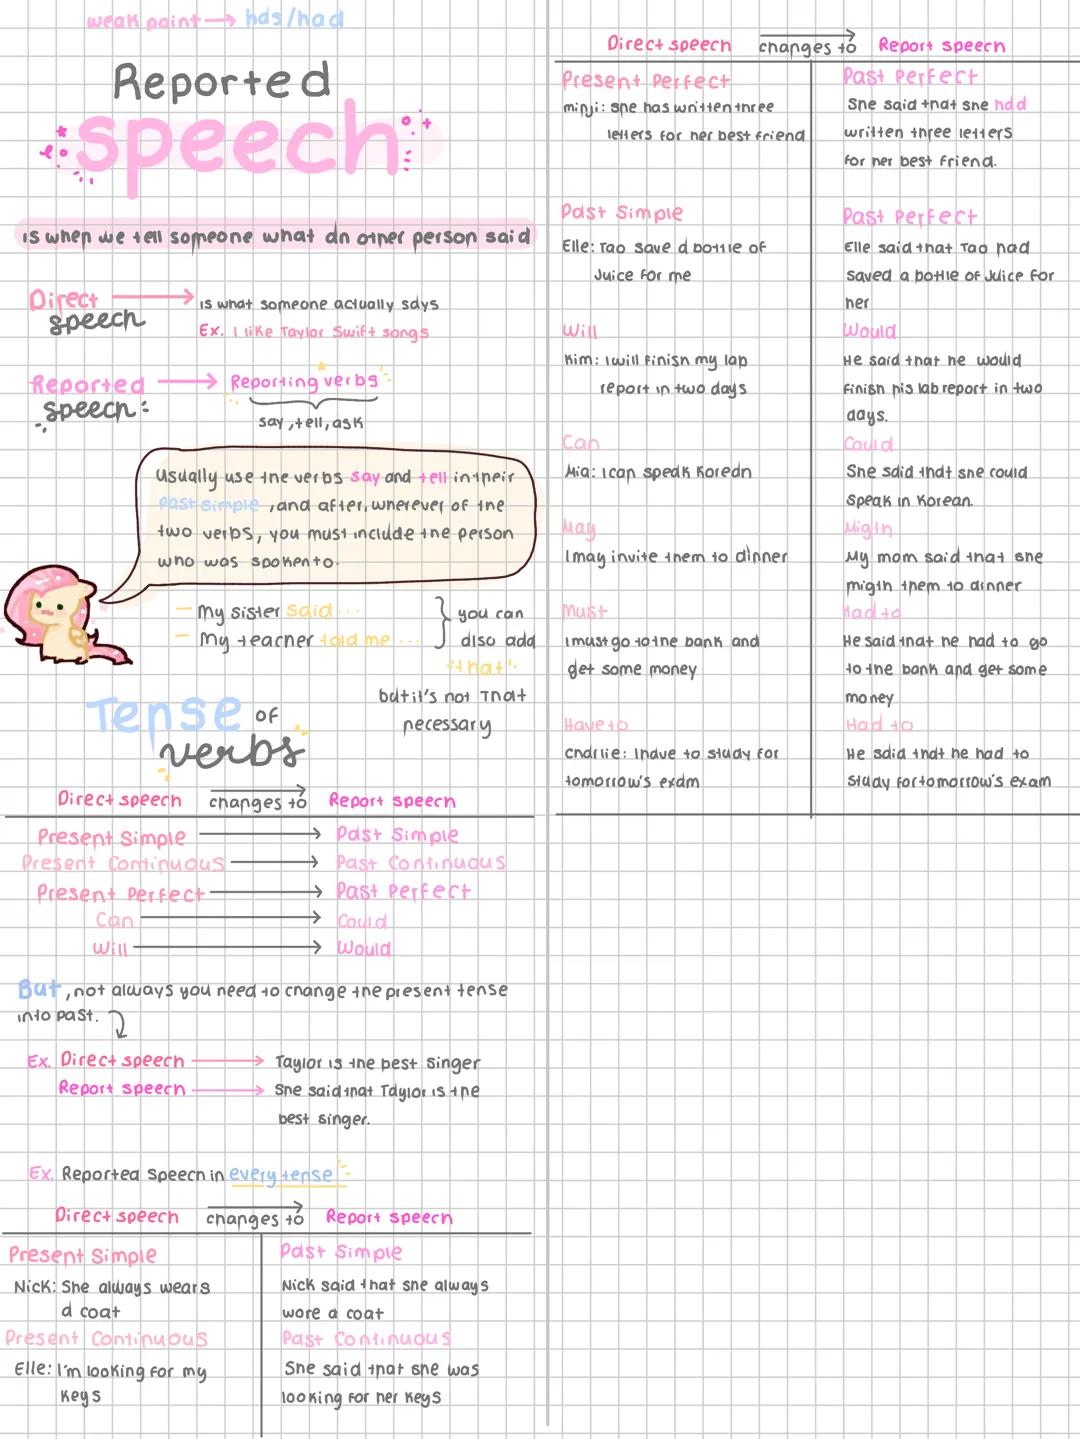 weak point → has/had
Reported
speech
is when we tell someone what an other person said
Direct speech → is what someone actually says
Ex. I like Taylor Swift songs
Reported speech: → Reporting verbs
say, tell, ask
Usually use the verbs say and tell in their
past simple, and after, wherever of the
two verbs, you must include the person
who was spoken to.
– My sister said ...
– My teacher told me ...
} you can
also add
"that"
but it's not that
necessary
Tense of
verbs
Direct speech changes to Report speech
Present Simple → Past Simple
Present Continuous → Past Continuous
Present Perfect → Past Perfect
Can → Could
Will → Would
But, not always you need to change the present tense
into past.
Ex. Direct speech → Taylor is the best singer
Report speech → She said that Taylor is the
best singer.
Ex. Reported Speech in every tense
Direct speech changes to Report speech
Present Simple
Nick: She always wears
a coat
Past Simple
Nick said that she always
wore a coat
Present Continuous
Elle: I'm looking for my
keys
Past Continuous
She said that she was
looking for her keys
Direct speech changes to Report speech
Present Perfect
minji: she has written three
letters for her best friend
Past Perfect
She said that she had
written three letters
for her best friend.
Past Simple
Elle: Tao save a bottle of
Juice for me
Past Perfect
Elle said that Tao had
saved a bottle of Juice for
her
Will
Kim: I will finish my lap
report in two days
Would
He said that he would
finish his lab report in two
days.
Can
Mia: I can speak Korean
Could
She said that she could
speak in Korean.
May
I may invite them to dinner
Migth
My mom said that she
migth them to dinner
Must
I must go to the bank and
get some money
Had to
He said that he had to go
to the bank and get some
money
Have to
Charlie: I have to study for
tomorrow's exam
Had to
He said that he had to
study for tomorrow's exam